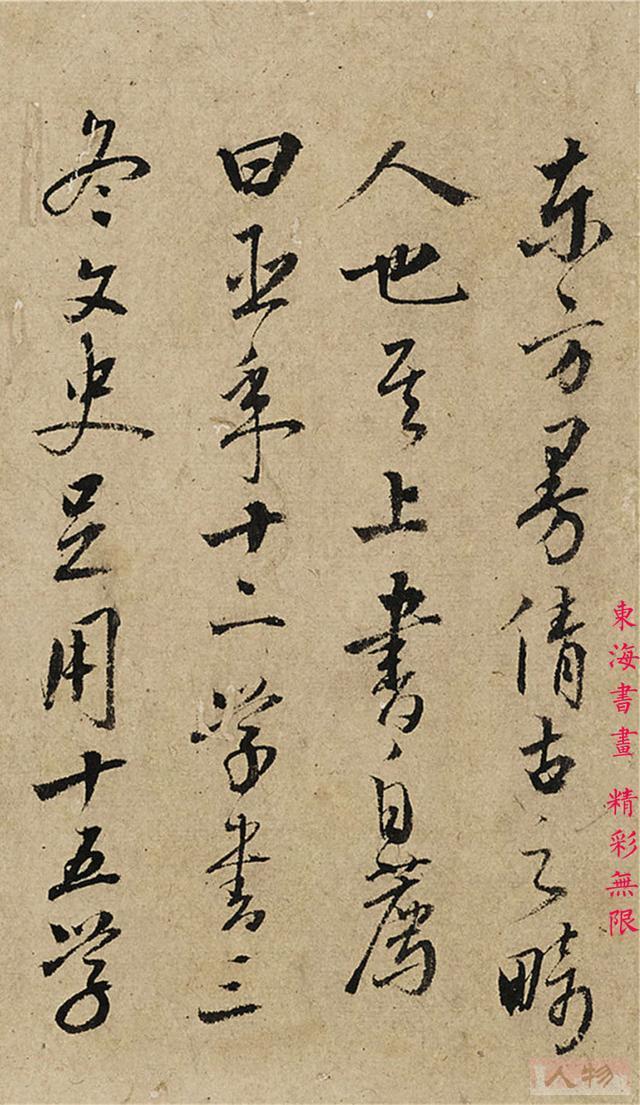 东方曼倩古之畸
人也其上書自薦
曰臣年十二学書三
冬文史足用十五学
東海書畫 精彩無限
人物